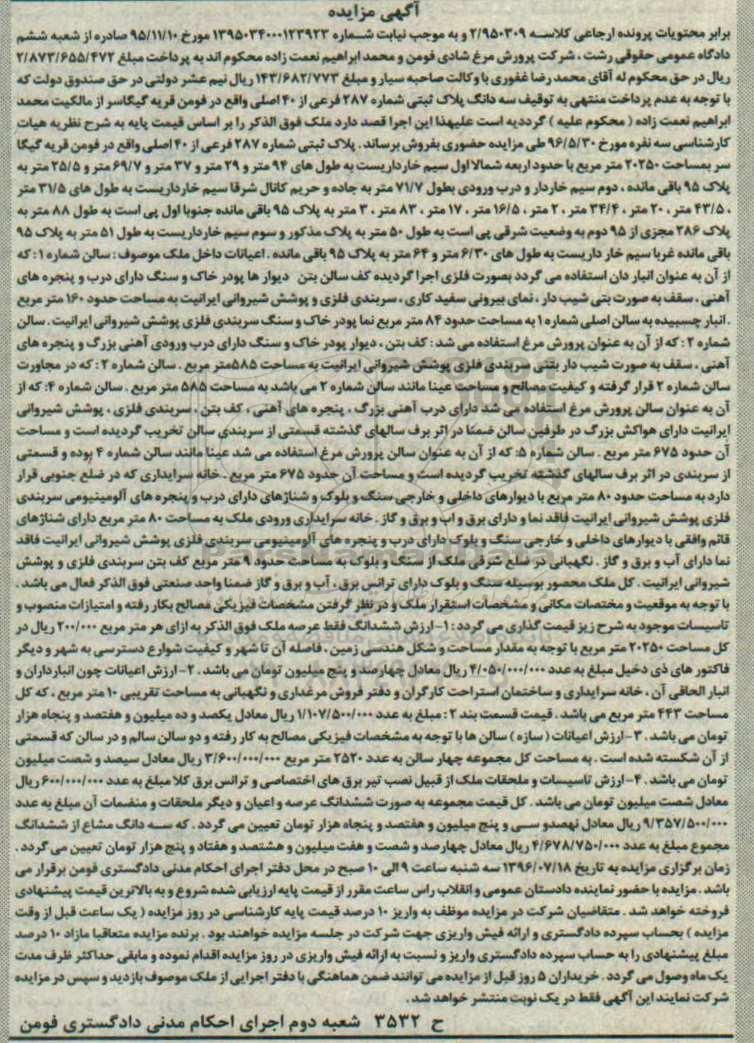 آگهی مزایده
برابر محتویات پرونده ارجاعی کلاسه ۲/۹۵۰۳۰۹ و به موجب نیابت شماره ۱۳۹۵۰۳۴۰۰۰۱۲۳۹۲۳ مورخ ۹۵/۱۱/۱۰ صادره از شعبه ششم
دادگاه عمومی حقوقی رشت ، شرکت پرورش مرغ شادی فومن و محمد ابراهیم نعمت زاده محکوم اند به پرداخت مبلغ ۲/۸۷۳/۶۵۵/۴۷۲
ریال در حق محکوم له آقای محمد رضا غفوری با وکالت صاحبه سیار و مبلغ ۱۴۳/۶۸۲/۷۷۳ ریال نیم عشر دولتی در حق صندوق دولت که
با توجه به عدم پرداخت منتهی به توقیف سه دانگ پلاک ثبتی شماره ۲۸۷ فرعی از ۴۰ اصلی واقع در فومن قریه گیگاسر از مالکیت محمد
ابراهیم نعمت زاده ( محکوم علیه ) گردیده است علیهذا این اجرا قصد دارد ملک فوق الذکر را بر اساس قیمت پایه به شرح نظریه هیات
کارشناسی سه نفره مورخ ۹۶/۵/۳۰ طی مزایده حضوری بفروش برساند . پلاک ثبتی شماره ۲۸۷ فرعی از ۴۰ اصلی واقع در فومن قریه گیگا
سر بمساحت ۲۰۲۵۰ متر مربع با حدود اربعه شمالا اول سیم خارداریست به طول های ۹۴ متر و ۲۹ متر و ۳۷ متر و ۶۹/۷ متر و ۲۵/۵ متر به
پلاک ۹۵ باقی مانده ، دوم سیم خاردار و درب ورودی بطول ۷۱/۷ متر به جاده و حریم کانال شرقا سیم خارداریست به طول های ۳۱/۵ متر
، ۴۳/۵ متر ، ۲۰ متر ، ۳۴/۴ متر ، ۲ متر ، ۱۶/۵ متر ، ۱۷ متر ، ۸۳ متر ، ۳ متر به پلاک ۹۵ باقی مانده جنوبا اول پی است به طول ۸۸ متر به
پلاک ۲۸۶ مجزی از ۹۵ دوم به وضعیت شرقی پی است به طول ۵۰ متر به پلاک مذکور و سوم سیم خارداریست به طول ۵۱ متر به پلاک ۹۵
باقی مانده غربا سیم خار داریست به طول های ۶/۳۰ متر و ۶۴ متر به پلاک ۹۵ باقی مانده . اعیانات داخل ملک موصوف : سالن شماره ۱ : که
از آن به عنوان انبار دان استفاده می گردد بصورت فلزی اجرا گردیده کف سالن بتن دیوار ها پودر خاک و سنگ دارای درب و پنجره های
آهنی ، سقف به صورت بتی شیب دار ، نمای بیرونی سفید کاری ، سربندی فلزی و پوشش شیروانی ایرانیت به مساحت حدود ۱۶۰ متر مربع
. انبار چسبیده به سالن اصلی شماره ۱ به مساحت حدود ۸۴ متر مربع نما پودر خاک و سنگ سربندی فلزی پوشش شیروانی ایرانیت . سالن
شماره ۲ : که از آن به عنوان پرورش مرغ استفاده می شد : کف بتن ، دیوار پودر خاک و سنگ دارای درب ورودی آهنی بزرگ و پنجره های
آهنی ، سقف به صورت شیب دار بتنی سربندی فلزی پوشش شیروانی ایرانیت به مساحت ۵۸۵متر مربع . سالن شماره ۲ : که در مجاورت
سالن شماره ۲ قرار گرفته و کیفیت مصالح و مساحت عینا مانند سالن شماره ۲ می باشد به مساحت ۵۸۵ متر مربع . سالن شماره ۴: که از
آن به عنوان سالن پرورش مرغ استفاده می شد دارای درب آهنی بزرگ ، پنجره های آهنی ، کف بتن ، سربندی فلزی ، پوشش شیروانی
ایرانیت دارای هواکش بزرگ در طرفین سالن ضمنا در اثر برف سالهای گذشته قسمتی از سربندی سالن تخریب گردیده است و مساحت
آن حدود ۶۷۵ متر مربع . سالن شماره ۵: که از آن به عنوان سالن پرورش مرغ استفاده می شد عینا مانند سالن شماره ۴ بوده و قسمتی
از سربندی در اثر برف سالهای گذشته تخریب گردیده است و مساحت آن حدود ۶۷۵ متر مربع . خانه سرایداری که در ضلع جنوبی قرار
دارد به مساحت حدود ۸۰ متر مربع با دیوارهای داخلی و خارجی سنگ و بلوک و شناژهای دارای درب و پنجره های آلومینیومی سربندی
فلزی پوشش شیروانی ایرانیت فاقد نما و دارای برق و اب و برق و گاز . خانه سرایداری ورودی ملک به مساحت ۸۰ متر مربع دارای شناژهای
قائم وافقی با دیوارهای داخلی و خارجی سنگ و بلوک دارای درب و پنجره های آلومینیومی سربندی فلزی پوشش شیروانی ایرانیت فاقد
نما دارای آب و برق و گاز . نگهبانی در ضلع شرقی ملک از سنگ و بلوک به مساحت حدود ۹ متر مربع کف بتن سربندی فلزی و پوشش
شیروانی ایرانیت . کل ملک محصور بوسیله سنگ و بلوک دارای ترانس برق ، آب و برق و گاز ضمنا واحد صنعتی فوق الذکر فعال می باشد .
با توجه به موقعیت و مختصات مکانی و مشخصات استقرار ملک و در نظر گرفتن مشخصات فیزیکی مصالح بکار رفته و امتیازات منصوب و
تاسیسات موجود به شرح زیر قیمت گذاری می گردد : ۱- ارزش ششدانگ فقط عرصه ملک فوق الذکر به ازای هر متر مربع ۲۰۰/۰۰۰ ریال در
کل مساحت ۲۰۲۵۰ متر مربع با توجه به مقدار مساحت و شکل هندسی زمین ، فاصله آن تا شهر و کیفیت شوارع دسترسی به شهر و دیگر
فاکتور های ذی دخیل مبلغ به عدد ۴/۰۵۰/۰۰۰/۰۰۰ ریال معادل چهارصد و پنج میلیون تومان می باشد . ۲- ارزش اعیانات چون انبارداران و
انبار الحاقی آن ، خانه سرایداری و ساختمان استراحت کارگران و دفتر فروش مرغداری و نگهبانی به مساحت تقریبی ۱۰ متر مربع ، که کل
مساحت ۴۴۳ متر مربع می باشد . قیمت قسمت بند ۲ : مبلغ به عدد ۱/۱۰۷/۵۰۰/۰۰۰ ریال معادل یکصد و ده میلیون و هفتصد و پنجاه هزار
تومان می باشد . ۳- ارزش اعیانات ( سازه ) سالن ها با توجه به مشخصات فیزیکی مصالح به کار رفته و دو سالن سالم و در سالن که قسمتی
از آن شکسته شده است . به مساحت کل مجموعه چهار سالن به عدد ۲۵۲۰ متر مربع ۳/۶۰۰/۰۰۰/۰۰۰ ریال معادل سیصد و شصت میلیون
تومان می باشد . ۴- ارزش تاسیسات و ملحقات ملک از قبیل نصب تیر برق های اختصاصی و ترانس برق کلا مبلغ به عدد ۶۰۰/۰۰۰/۰۰۰ ریال
معادل شصت میلیون تومان می باشد . کل قیمت مجموعه به صورت ششدانگ عرصه و اعیان و دیگر ملحقات و منضمات آن مبلغ به عدد
۹/۳۵۷/۵۰۰/۰۰۰ ریال معادل نهصدو سی و پنج میلیون و هفتصد و پنجاه هزار تومان تعیین می گردد . که سه دانگ مشاع از ششدانگ
مجموع مبلغ به عدد ۴/۶۷۸/۷۵۰/۰۰۰ ریال معادل چهارصد و شصت و هفت میلیون و هشتصد و هفتاد و پنج هزار تومان تعیین می گردد .
زمان برگزاری مزایده به تاریخ ۱۳۹۶/۰۷/۱۸ سه شنبه ساعت ۹ الی ۱۰ صبح در محل دفتر اجرای احکام مدنی دادگستری فومن برقرار می
باشد . مزایده با حضور نماینده دادستان عمومی و انقلاب راس ساعت مقرر از قیمت پایه ارزیابی شده شروع و به بالاترین قیمت پیشنهادی
فروخته خواهد شد . متقاضیان شرکت در مزایده موظف به واریز ۱۰ درصد قیمت پایه کارشناسی در روز مزایده ( یک ساعت قبل از وقت
مزایده ) بحساب سپرده دادگستری و ارائه فیش واریزی جهت شرکت در جلسه مزایده خواهند بود . برنده مزایده متعاقبا مازاد ۱۰ درصد
مبلغ پیشنهادی را به حساب سپرده دادگستری واریز و نسبت به ارائه فیش واریزی در روز مزایده اقدام نموده و مابقی حداکثر ظرف مدت
یک ماه وصول می گردد . خریداران ۵ روز قبل از مزایده می توانند ضمن هماهنگی با دفتر اجرایی از ملک موصوف بازدید و سپس در مزایده
شرکت نمایند این آگهی فقط در یک نوبت منتشر خواهد شد .
ح ۳۵۳۲ شعبه دوم اجرای احکام مدنی دادگستری فومن